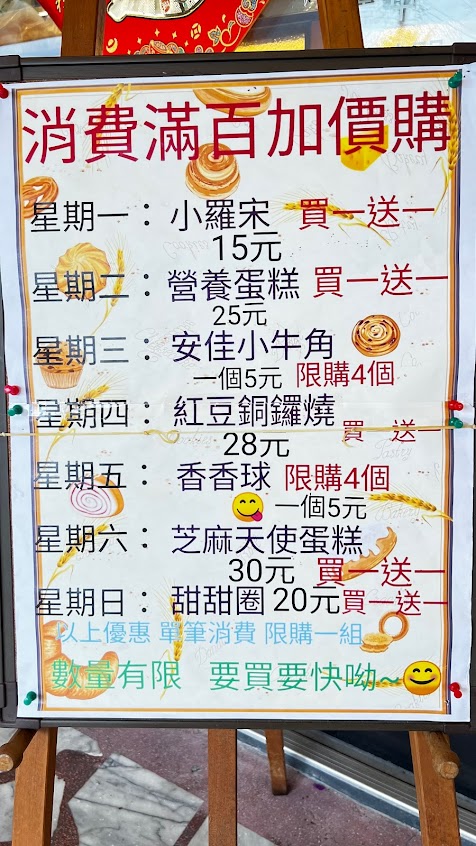 消費滿百加價購
星期一： 小羅宋 買一送一
15元
星期二： 營養蛋糕 買一送一
25元
星期三： 安佳小牛角
一個5元 限購4個
星期四： 紅豆銅鑼燒
28元 買 送
星期五： 香香球 限購4個
😋 一個5元
星期六： 芝麻天使蛋糕
30元 買一送一
星期日： 甜甜圈 20元買一送一
以上優惠 單筆消費 限購一組
數量有限 要買要快呦~😊